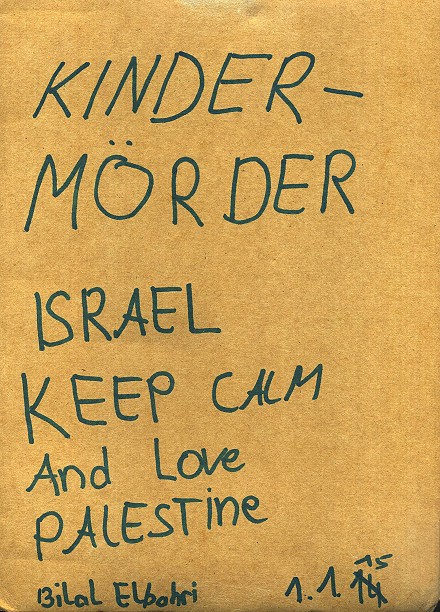 KINDER-
MÖRDER
ISRAEL
KEEP CALM
And Love
PALESTine
Bilal Elbahri 1.1. 15